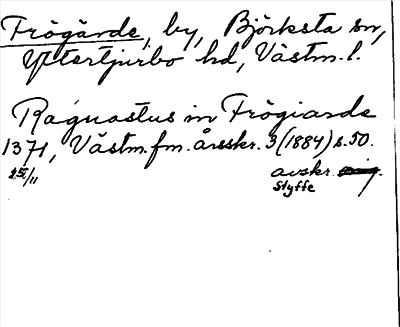 Frögärde, by, Björksta sn,
Yttertjurbo hd, Västm. l.
Ragnastus in Frögiarde
1371, Västm. fm. årsskr. 3 (1884) s. 50.
25/11 avskr.
Styffe